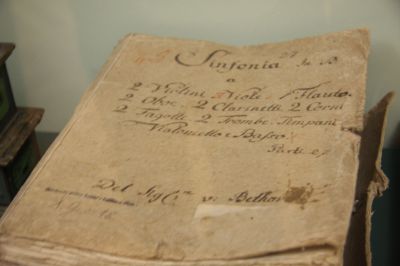 Sinfonia In B
a
2 Violini Viole 1 Flauto
2 Oboe 2 Clarinetti 2 Corni
2 Fagotti 2 Trombe Timpani
Violoncello e Basso
Parti 27
Del Sig v: Bethoven